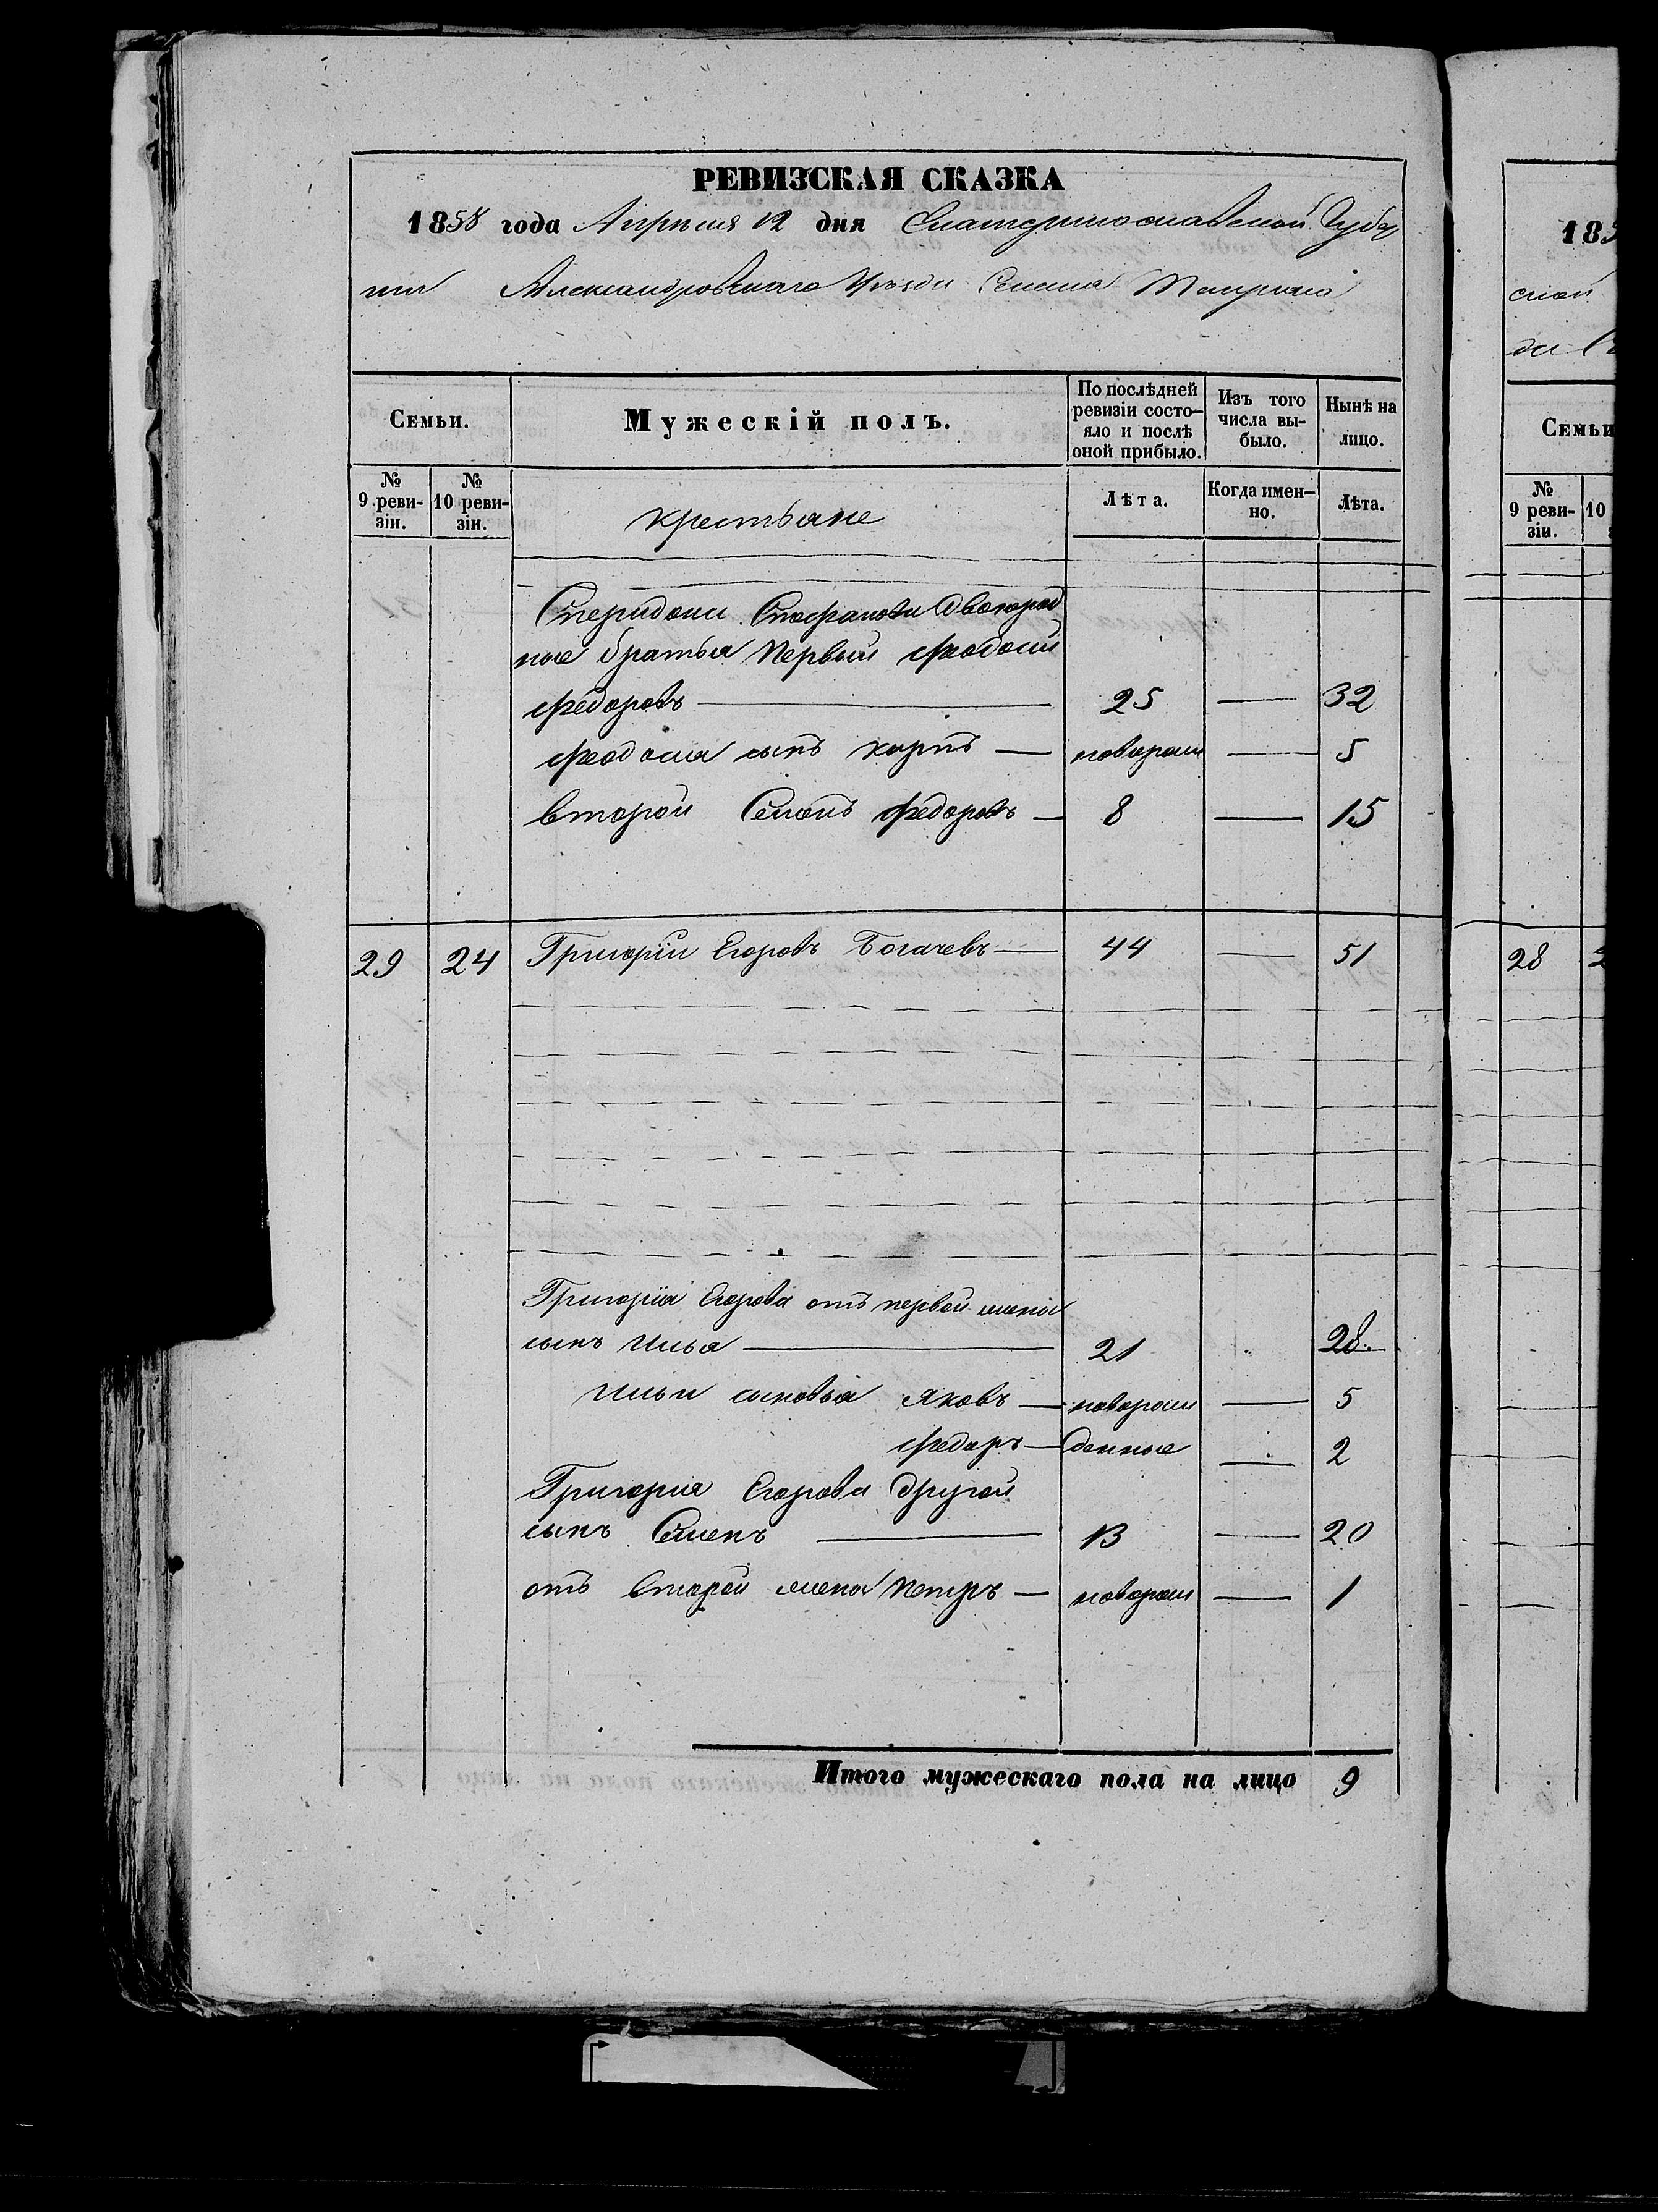 РЕВИЗСКАЯ СКАЗКА
1858 года Апрѣля 12 дня Екатеринославской Губер
нiи Александровскаго Уѣзда Селенiя
Семьи. Мужескiй полъ. По послѣдней ревизiи состояло и послѣ оной прибыло. Изъ того числа выбыло. Нынѣ на лицо.
№ 9 ревизiи. № 10 ревизiи. крестьяне Лѣта. Когда именно. Лѣта.
Сперидона двоюрод
ные братья Первый Феодосiй
Федоровъ 25 — 32
Феодосiя сынъ карпъ — новорож — 5
второй Семонъ Федоровъ — 8 — 15
29 24 Григорiй Егоровъ Богачевъ — 44 — 51
Григорiя Егорова отъ первой жены
сынъ Илья 21 28
Ильи сыновья Яковъ — новорож — 5
Федоръ — денные — 2
Григория Егорова другой
сынъ Семенъ — 13 — 20
отъ второй жены Петръ — новорож — 1
Итого мужескаго пола на лицо 9
185
ской
Семьи
№ 9 ревизiи. 10
28 2